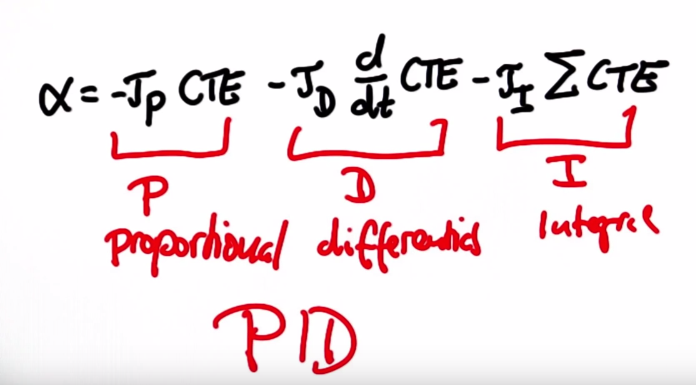 α = -τ_P CTE - τ_D d/dt CTE - τ_I Σ CTE
P D I
proportional differential integral
PID